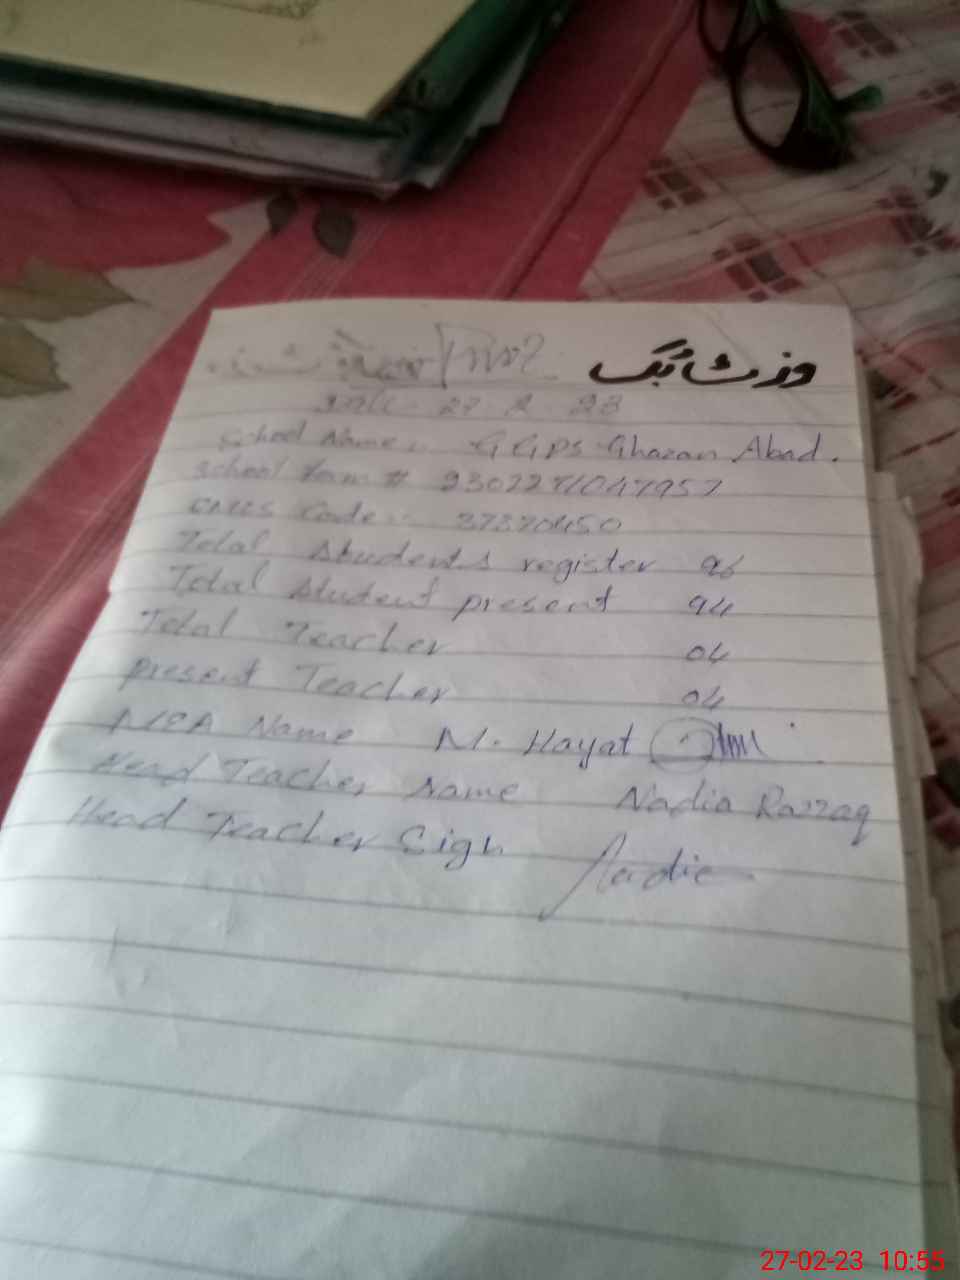 وزٹ بُک
Date 27 - 2 - 23
School Name:- GGPS Ghazan Abad.
School # 2302281047957
Code:- 37370450
Total Students register 96
Total Student present 94
Total Teacher 04
present Teacher 04
Name M. Hayat
Head Teacher Name Nadia Razzaq
Head Teacher Sign Nadia
27-02-23 10:55